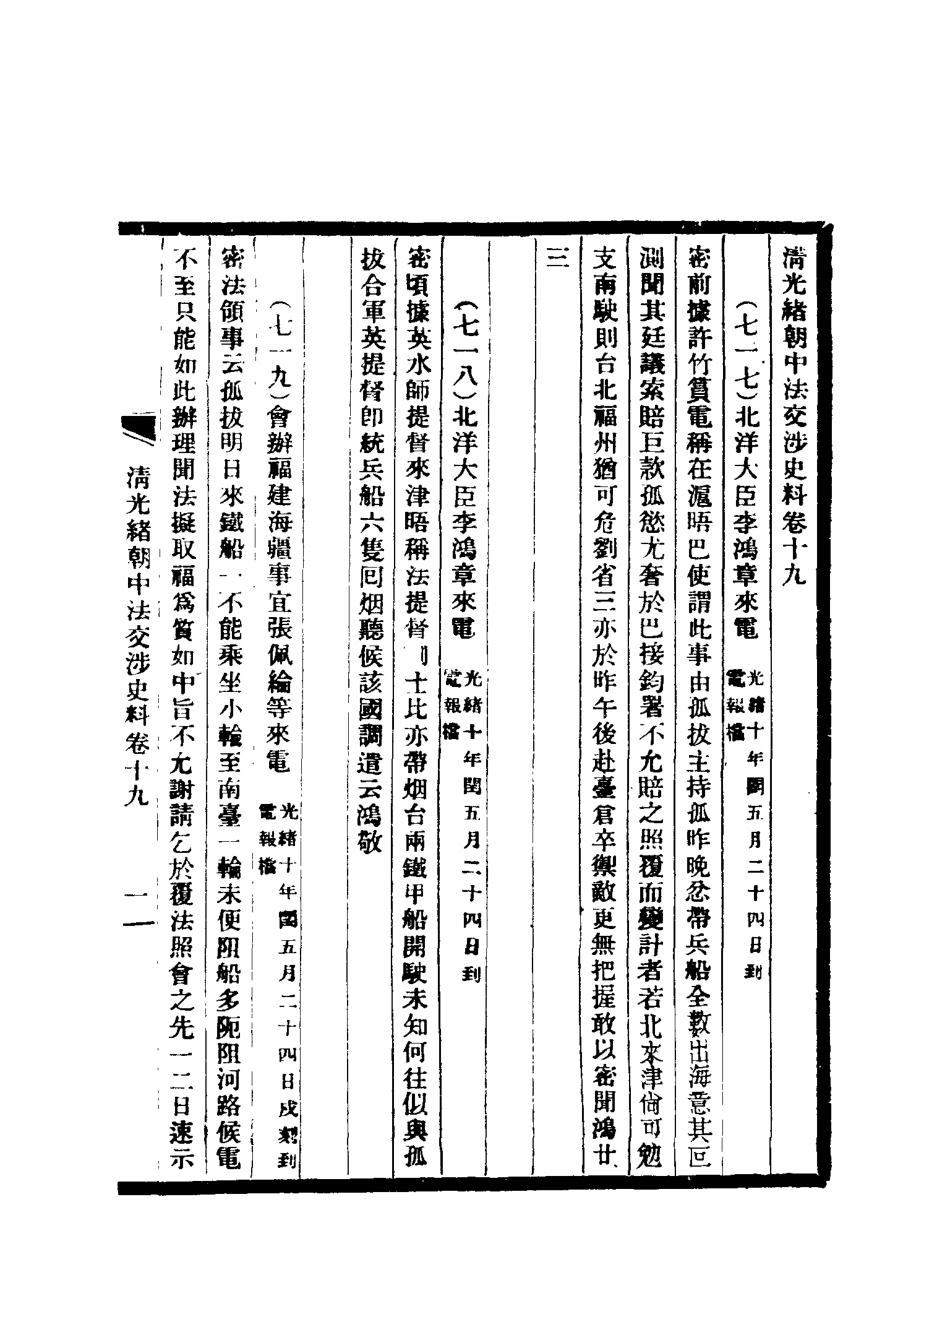 清光緒朝中法交涉史料卷十九
(七一七)北洋大臣李鴻章來電
光緒十年閏五月二十四日到
電報檔
密前據許竹篔電稱在滬晤巴使謂此事由孤拔主持孤昨晚忿帶兵船全數出海意其叵
測聞其廷議索賠巨款孤慾尤奢於巴接鈞署不允賠之照覆而變計者若北來津尙可勉
支南駛則台北福州猶可危劉省三亦於昨午後赴臺倉卒禦敵更無把握敢以密聞鴻廿
三
(七一八)北洋大臣李鴻章來電
光緒十年閏五月二十四日到
電報檔
密頃據英水師提督來津晤稱法提督 士比亦帶烟台兩鐵甲船開駛未知何往似與孤
拔合軍英提督卽統兵船六隻回烟聽候該國調遣云鴻敬
(七一九)會辦福建海疆事宜張佩綸等來電
光緒十年閏五月二十四日戌刻到
電報檔
密法領事云孤拔明日來鐵船一不能乘坐小輪至南臺一輪未便阻船多阨阻河路候電
不至只能如此辦理聞法擬取福爲質如中旨不允謝請乞於覆法照會之先一二日速示
清光緒朝中法交涉史料卷十九
一